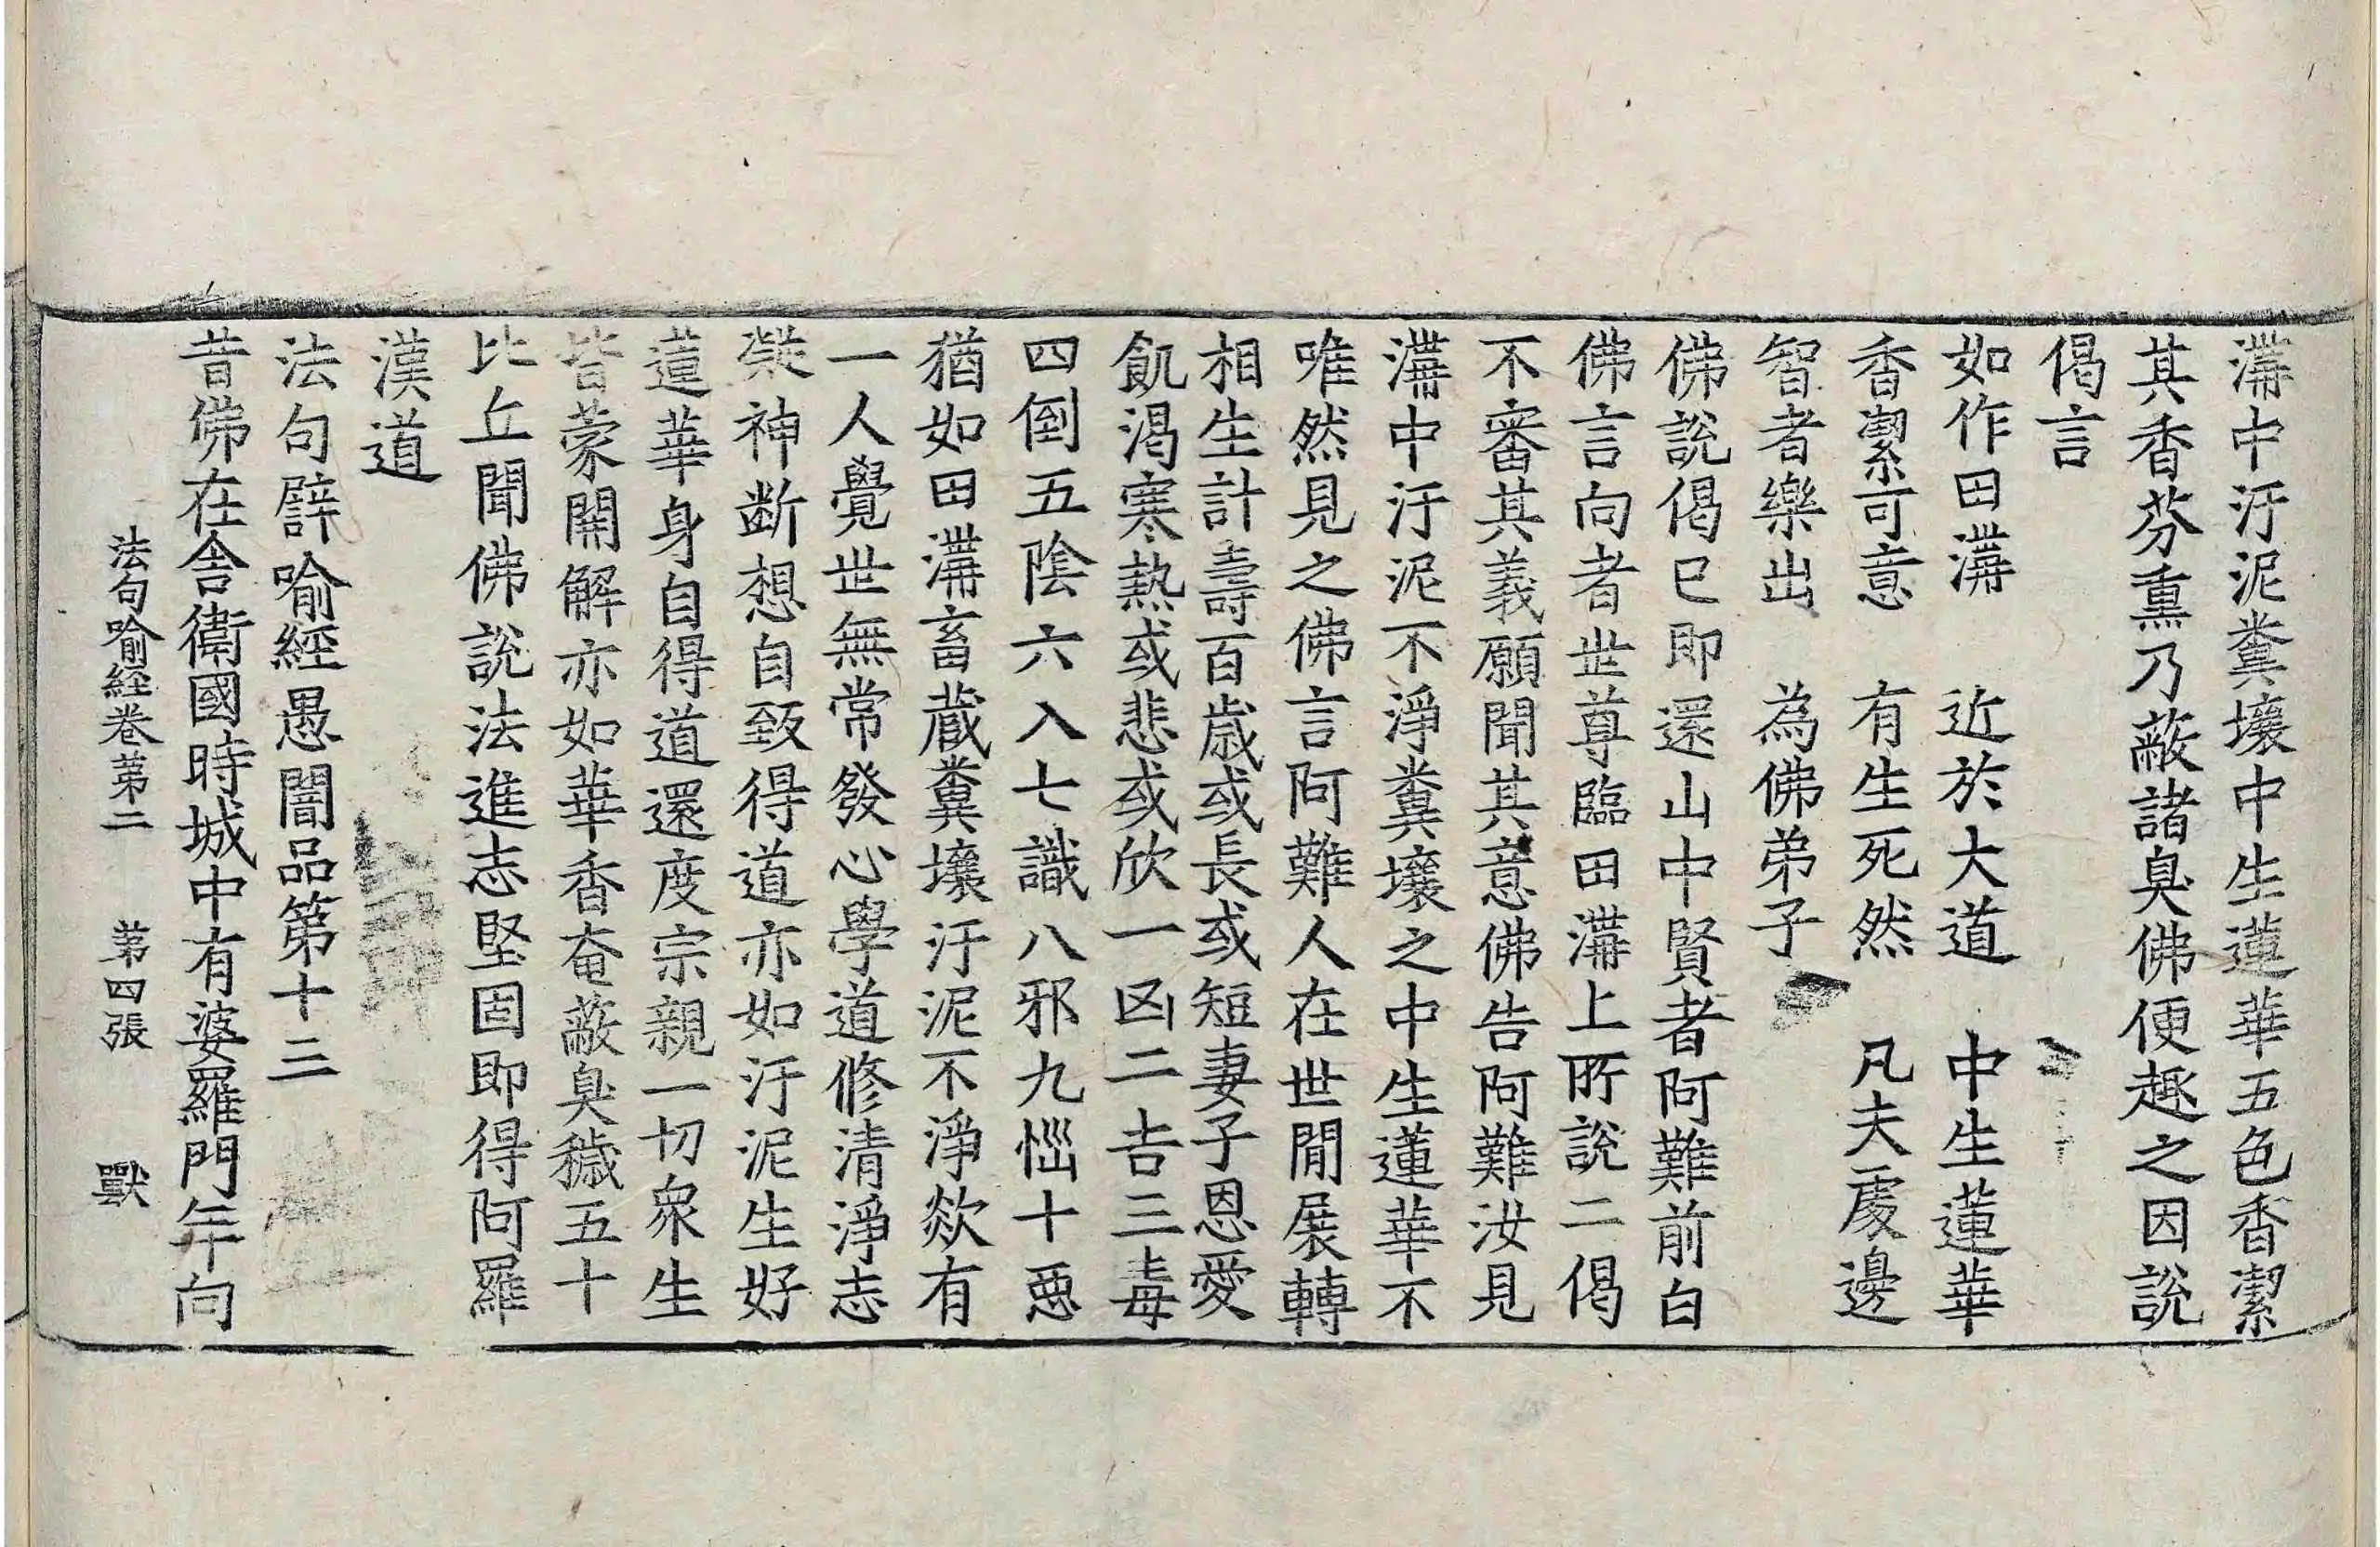 溝中汙泥糞壤中生蓮華五色香潔
其香芬熏乃蔽諸臭佛便趣之因說
偈言
如作田溝　近於大道　中生蓮華
香潔可意　有生死然　凡夫處邊
智者樂出　為佛弟子
佛說偈已即還山中賢者阿難前白
佛言向者世尊臨田溝上所說二偈
不審其義願聞其意佛告阿難汝見
溝中汙泥不淨糞壤之中生蓮華不
唯然見之佛言阿難人在世間展轉
相生計壽百歲或長或短妻子恩愛
飢渴寒熱或悲或欣一凶二吉三毒
四倒五陰六入七識八邪九惱十惡
猶如田溝畜藏糞壤汙泥不淨欻有
一人覺世無常發心學道修清淨志
凝神斷想自致得道亦如汙泥生好
蓮華身自得道還度宗親一切眾生
皆蒙開解亦如華香奄蔽臭穢五十
比丘聞佛說法進志堅固即得阿羅
漢道
法句譬喻經愚闇品第十三
昔佛在舍衛國時城中有婆羅門年向
法句喻經卷第二　第四張　獸